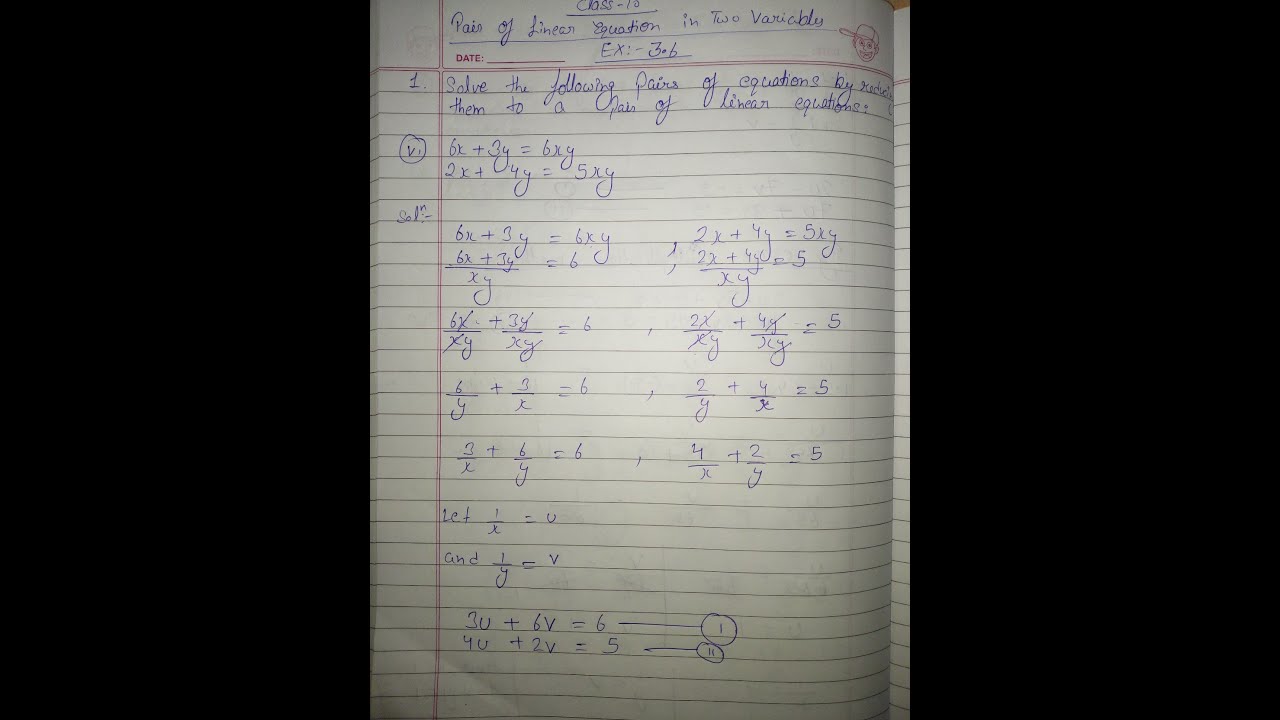 Class-10
Pair of Linear Equation in Two Variables
DATE:
EX:- 3.6
1. Solve the following Pairs of equations by
them to a Pair of linear equations:
vi 6x + 3y = 6xy
2x + 4y = 5xy
Solⁿ:-
6x + 3y = 6xy , 2x + 4y = 5xy
6x + 3y / xy = 6 , 2x + 4y / xy = 5
6x/xy + 3y/xy = 6 , 2x/xy + 4y/xy = 5
6/y + 3/x = 6 , 2/y + 4/x = 5
3/x + 6/y = 6 , 4/x + 2/y = 5
Let 1/x = u
and 1/y = v
3u + 6v = 6 — I
4u + 2v = 5 — II